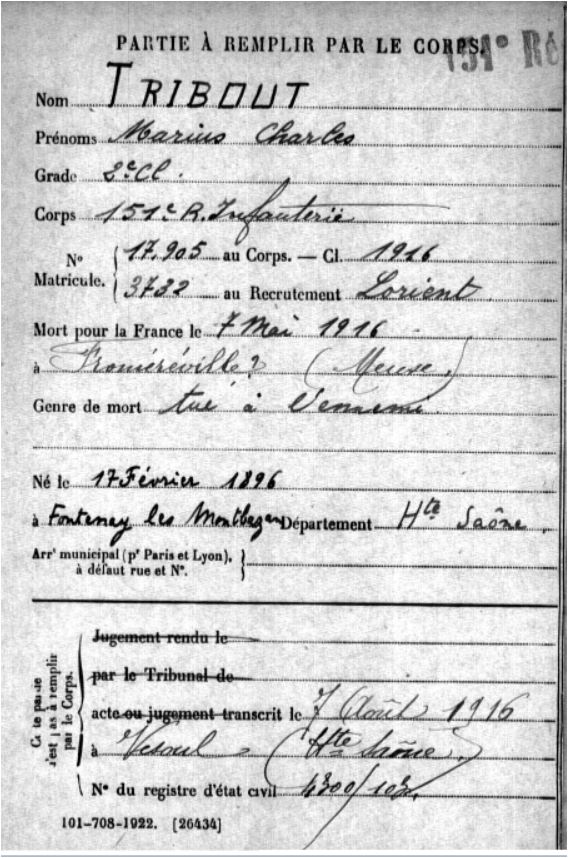 PARTIE À REMPLIR PAR LE CORPS.
151e Ré
Nom TRIBOUT
Prénoms Marius Charles
Grade 2e Cl.
Corps 151e R. Infanterie
No Matricule. { 17.905 au Corps. — Cl. 1916
3732 au Recrutement Lorient
Mort pour la France le 7 Mai 1916
à Froméréville? (Meuse)
Genre de mort tué à l'ennemi
Né le 17 Février 1896
à Fontenay les Montbozon Département Hte Saône
Arrt municipal (pr Paris et Lyon), à défaut rue et No. }
Jugement rendu le
par le Tribunal de
acte ou jugement transcrit le 7 Août 1916
à Vesoul - (Hte Saône)
No du registre d'état civil 4300/103.
Cette partie n'est pas à remplir par le Corps.
101-708-1922. [26434]